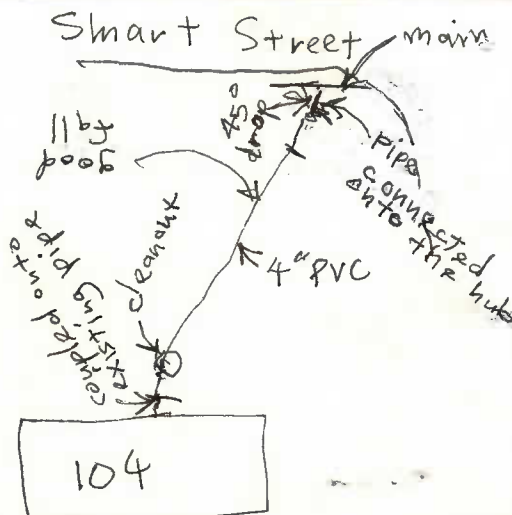 Smart Street
main
45°
drop
good
fall
pipe
connected
onto the hub
cleanout
4" PVC
coupled onto
existing pipe
104